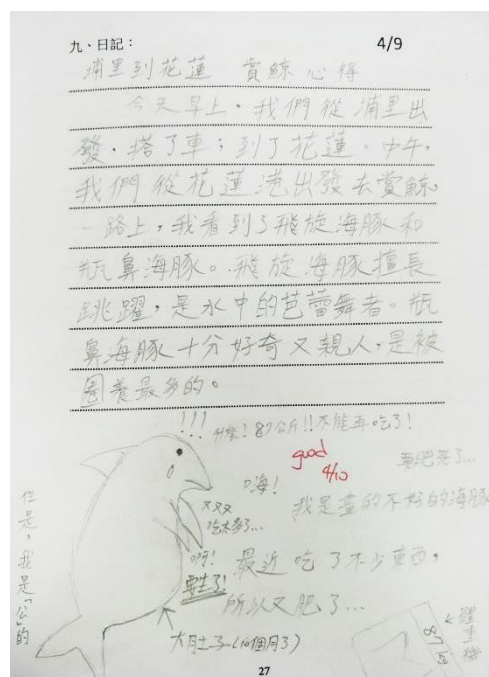 九、日記：
4/9
浦里到花蓮 賞鯨心得
今天早上，我們從浦里出
發，搭了車；到了花蓮。中午，
我們從花蓮港出發去賞鯨。
一路上，我看到了飛旋海豚和
瓶鼻海豚。飛旋海豚擅長
跳躍，是水中的芭蕾舞者。瓶
鼻海豚十分好奇又親人，是被
圈養最多的。
!!!
什麼！87公斤!!不能再吃了！
good
4/10
要肥死了…
嗨！
我是畫的不好的海豚
又又又
吃太多了…
啊！
要生了！
最近吃了不少東西，
所以又肥了…
但是，我是「公」的
大肚子(10個月了)
體重機
87
27